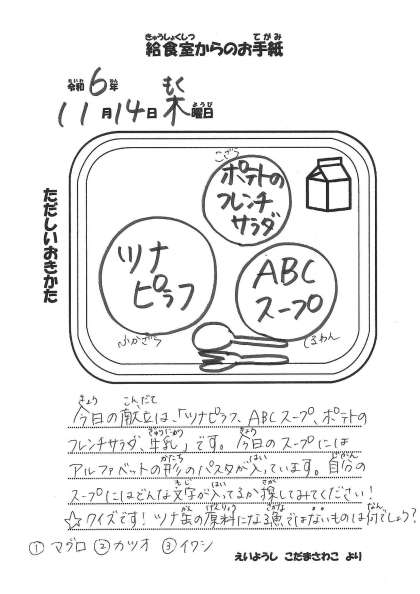 給食室からのお手紙
令和6年
11月14日木曜日
ただしいおきかた
こざら
ポテトの
フレンチ
サラダ
ツナ
ピラフ
ABC
スープ
ふかざら
しるわん
今日の献立は、「ツナピラフ、ABCスープ、ポテトの
フレンチサラダ、牛乳」です。今日のスープには
アルファベットの形のパスタが入っています。自分の
スープにはどんな文字が入ってるか探してみてください!
☆クイズです!ツナ缶の原料になる魚ではないものは何でしょう?
①マグロ ②カツオ ③イワシ
えいようし こだまさわこ より